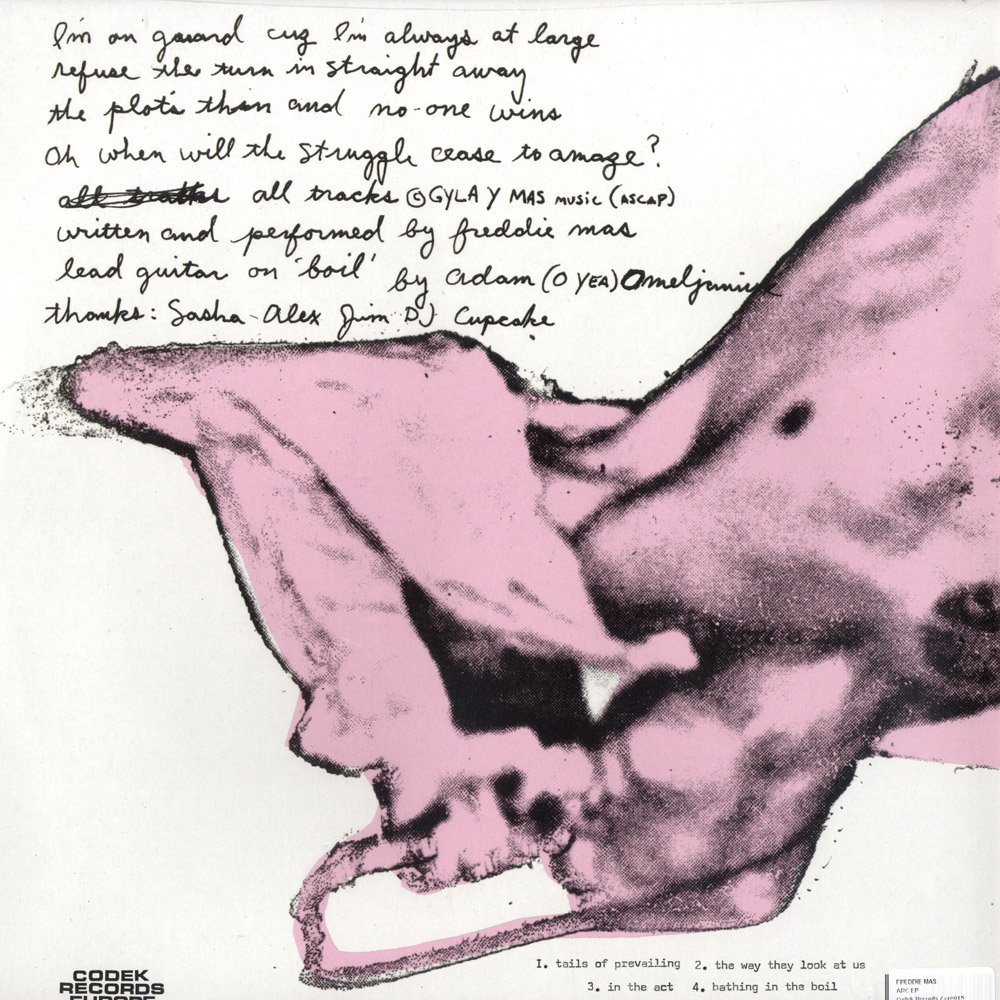 I'm on guard cuz I'm always at large
refuse the turn in straight away
the plot's thin and no-one wins
Oh when will the struggle cease to amaze?
all tracks all tracks ©GYLA Y MAS MUSIC (ASCAP)
written and performed by freddie mas
lead guitar on 'boil' by adam (O YEA) Omeljaniuk
thanks: Sasha - Alex Jim DJ Cupcake
I. tails of prevailing 2. the way they look at us
3. in the act 4. bathing in the boil
CODEK
RECORDS
EUROPE
FREDDIE MAS
ARC EP
Codek Records /